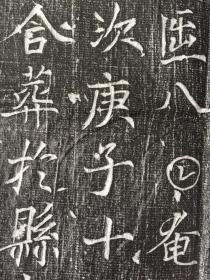 𠥱八𡆠奄
次庚子十
合葬於縣